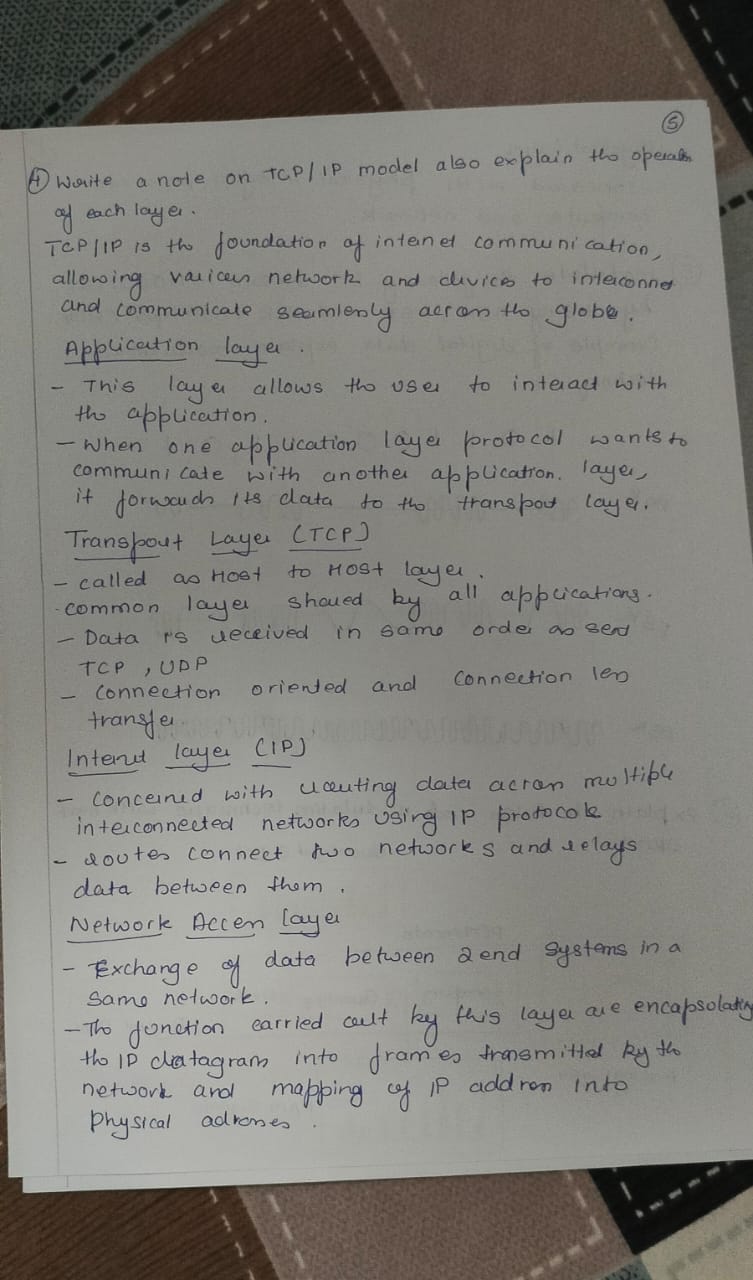 5
4) Write a note on TCP/IP model also explain the operation
of each layer.
TCP/IP is the foundation of internet communication,
allowing various network and devices to interconnect
and communicate seamlessly across the globe.
Application layer.
- This layer allows the user to interact with
the application.
- When one application layer protocol wants to
communicate with another application layer,
it forwards its data to the transport layer.
Transport Layer (TCP)
- called as Host to Host layer.
- common layer shared by all applications.
- Data is received in same order as send
TCP, UDP
- Connection oriented and connection less
transfer
Internet layer (IP)
- Concerned with routing data across multiple
interconnected networks using IP protocol
- routes connect two networks and relays
data between them.
Network Access layer
- Exchange of data between 2 end systems in a
same network.
- The function carried out by this layer are encapsulating
the IP datagram into frames transmitted by the
network and mapping of IP address into
physical adresses.